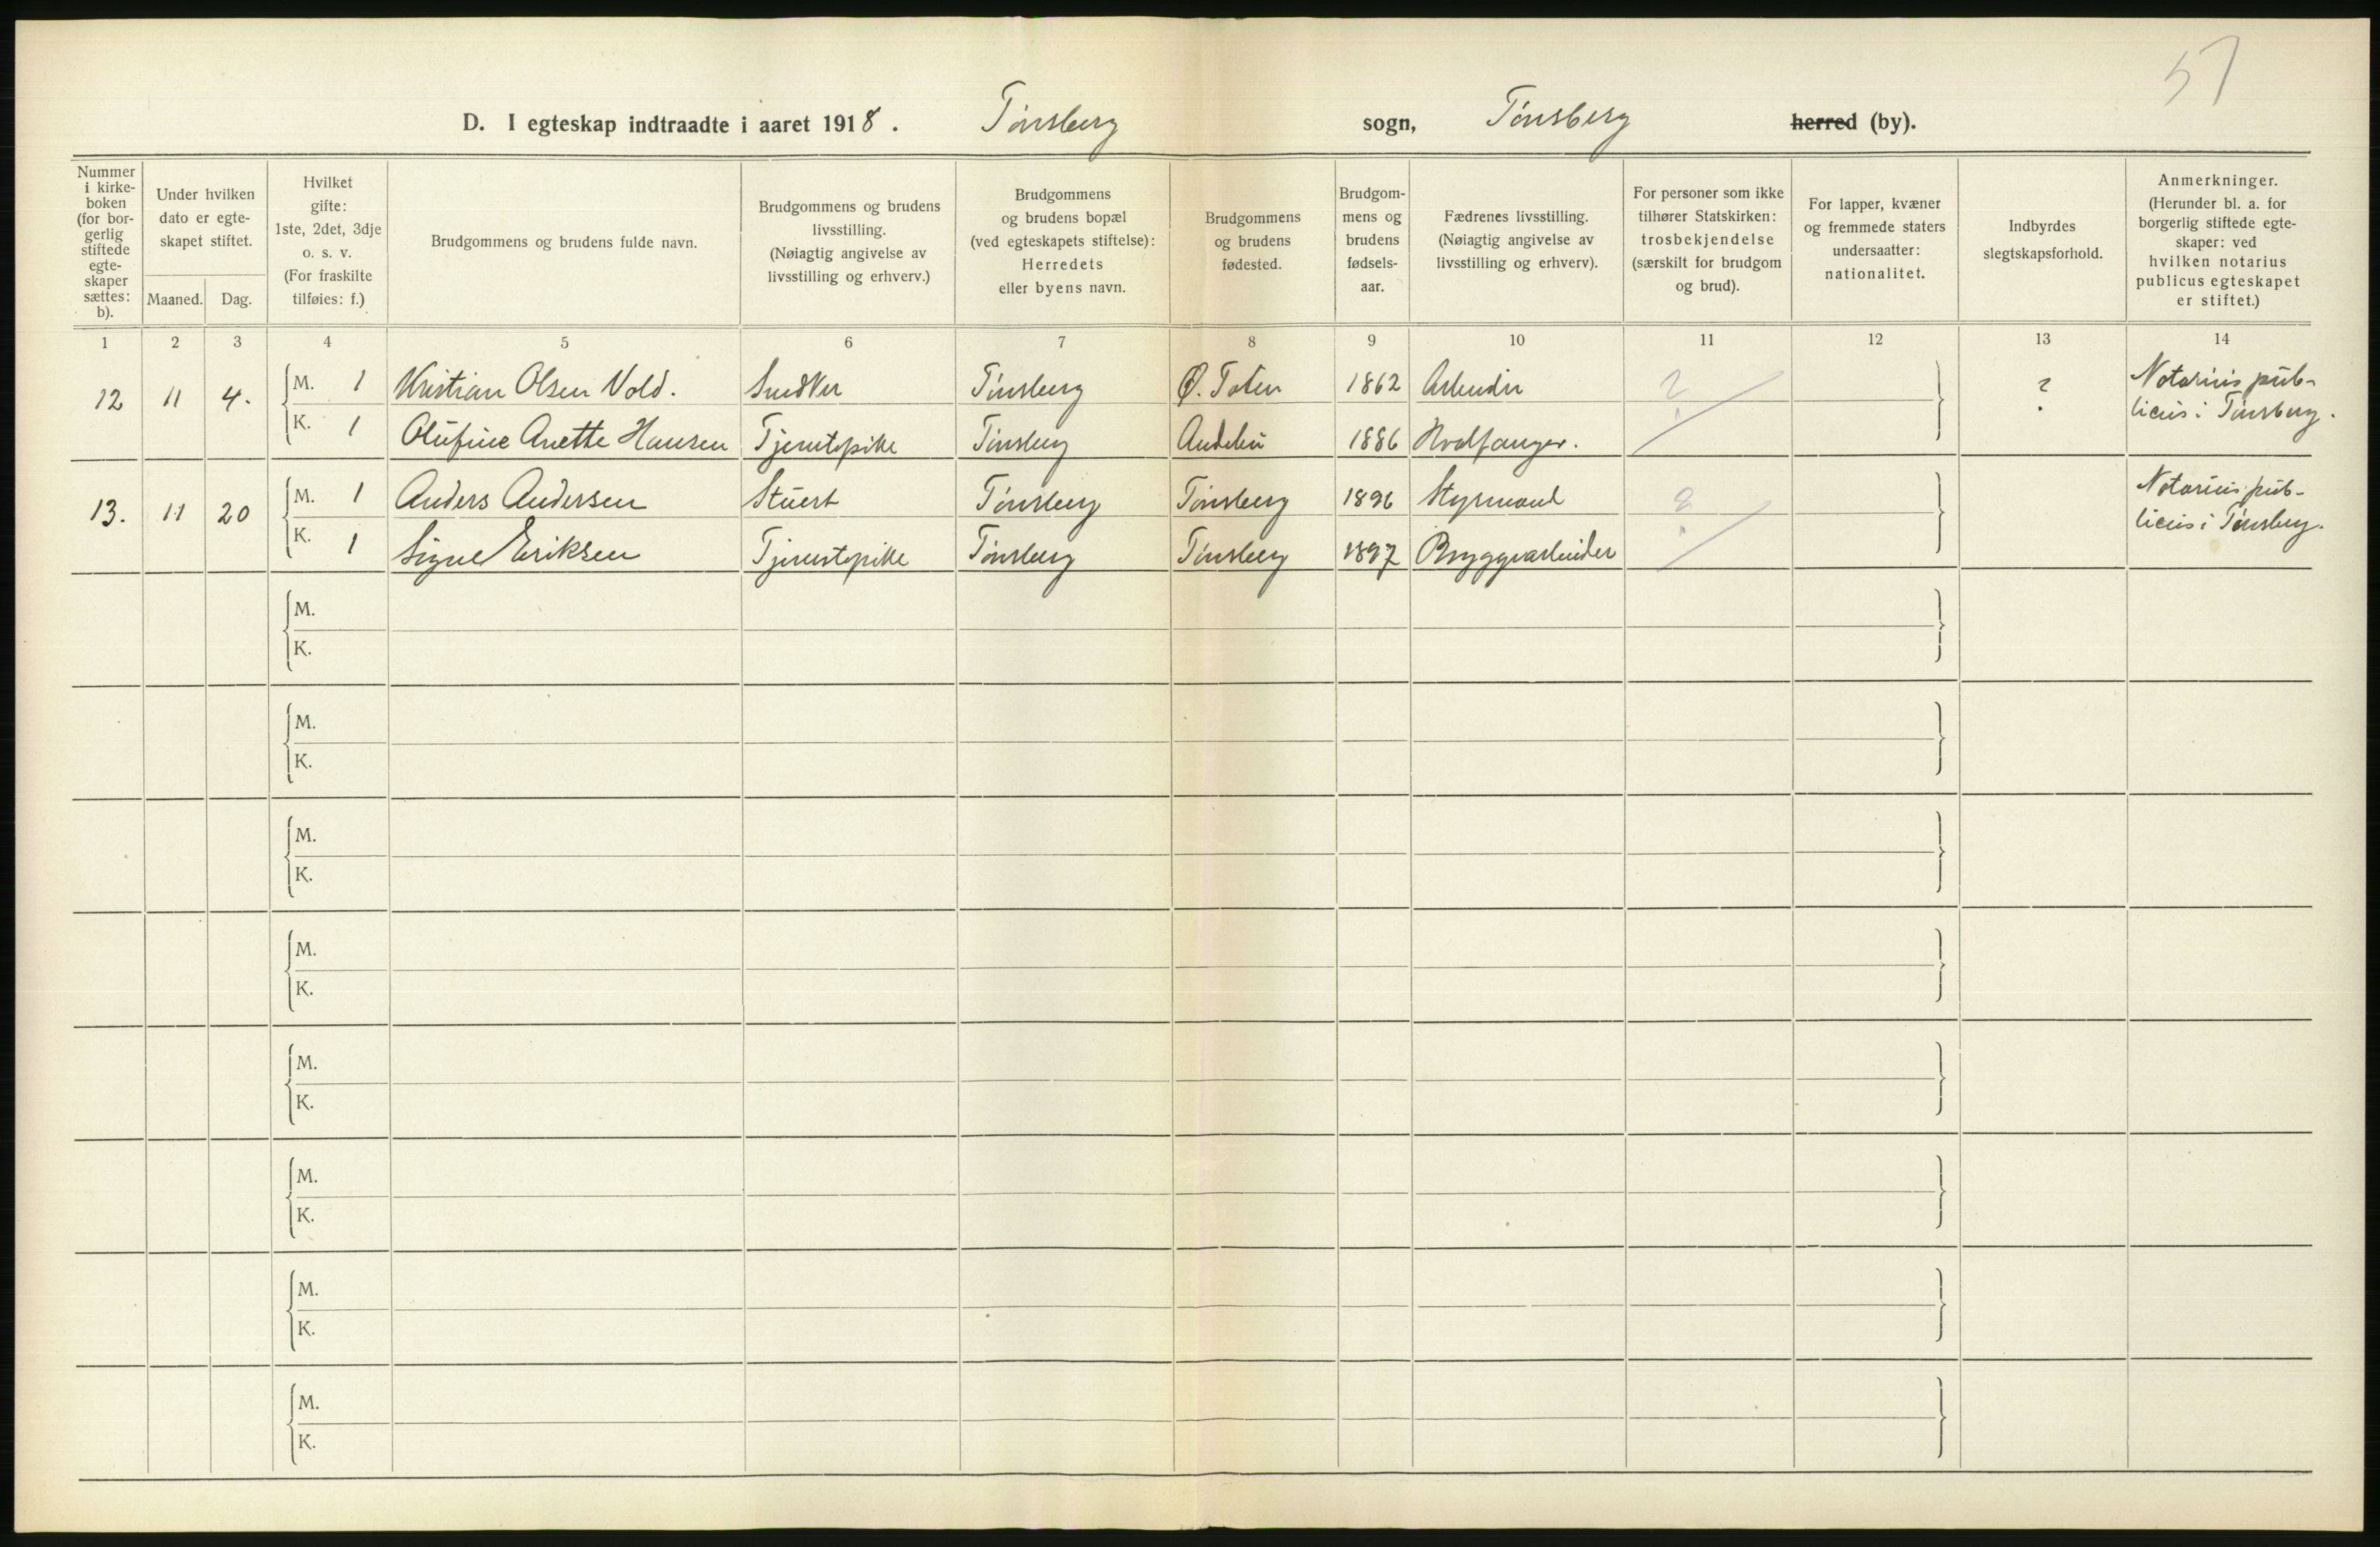 57
D. I egteskap indtraadte i aaret 1918. Tønsberg sogn, Tønsberg herred (by).
Nummer i kirke- boken (for bor- gerlig stiftede egte- skaper sættes: b).
Under hvilken dato er egte- skapet stiftet.
Maaned. Dag.
Hvilket gifte: 1ste, 2det, 3dje o. s. v. (For fraskilte tilføies: f.)
Brudgommens og brudens fulde navn.
Brudgommens og brudens livsstilling. (Nøiagtig angivelse av livsstilling og erhverv.)
Brudgommens og brudens bopæl (ved egteskapets stiftelse): Herredets eller byens navn.
Brudgommens og brudens fødested.
Brudgom- mens og brudens fødsels- aar.
Fædrenes livsstilling. (Nøiagtig angivelse av livsstilling og erhverv).
For personer som ikke tilhører Statskirken: trosbekjendelse (særskilt for brudgom og brud).
For lapper, kvæner og fremmede staters undersaatter: nationalitet.
Indbyrdes slegtskapsforhold.
Anmerkninger. (Herunder bl. a. for borgerlig stiftede egte- skaper: ved hvilken notarius publicus egteskapet er stiftet.)
1 2 3 4 5 6 7 8 9 10 11 12 13 14
12 11 4. M. 1 Kristian Olsen Vold. Snedker Tønsberg Ø. Toten 1862 Arbeider ? ? Notarius pub-
K. 1 Olufine Anette Hansen Tjenestepike Tønsberg Andebu 1886 Hvalfanger. licus i Tønsberg.
13. 11 20 M. 1 Anders Andersen Stuert Tønsberg Tønsberg 1896 Styrmand ? Notarius pub-
K. 1 Signe Eriksen Tjenestepike Tønsberg Tønsberg 1897 Bryggearbeider licus i Tønsberg.
M.
K.
M.
K.
M.
K.
M.
K.
M.
K.
M.
K.
M.
K.
M.
K.